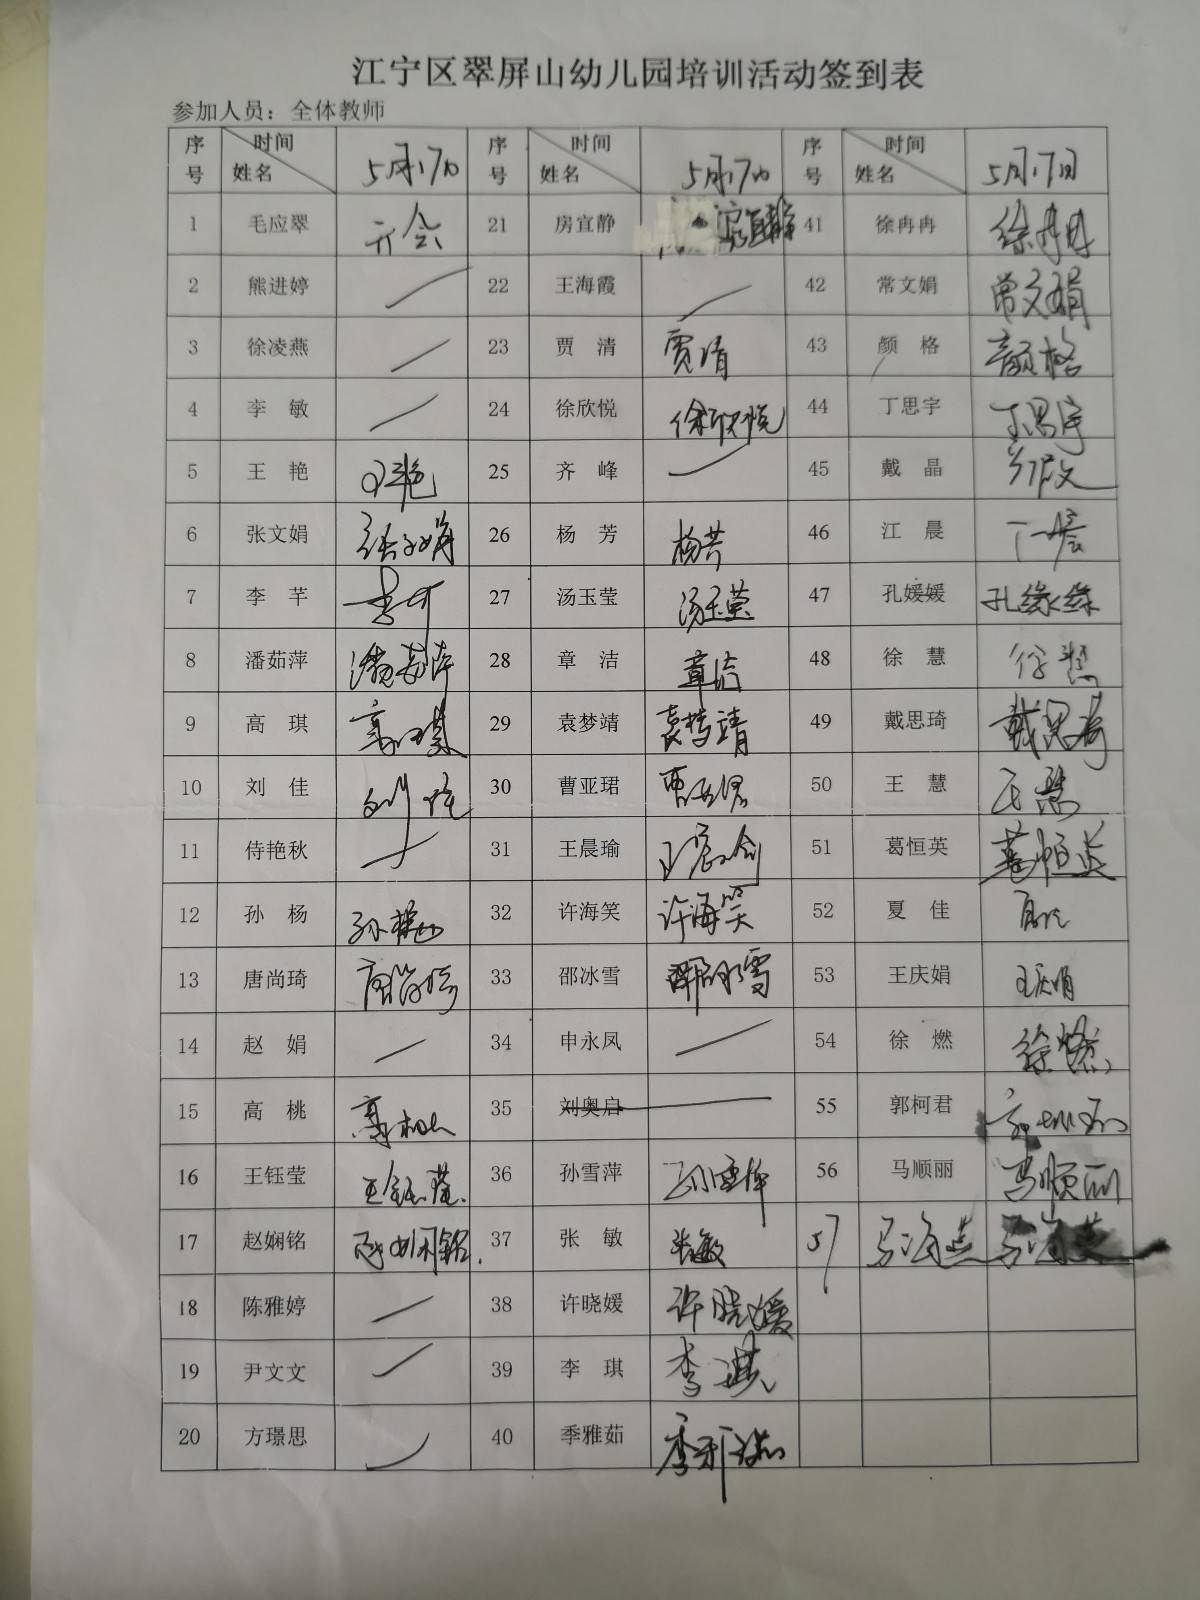 江宁区翠屏山幼儿园培训活动签到表
参加人员：全体教师
序号 时间 姓名 5月17日 序号 时间 姓名 5月17日 序号 时间 姓名 5月17日
1 毛应翠 开会 21 房宜静 房宜静 41 徐冉冉 徐冉冉
2 熊进婷 22 王海霞 42 常文娟 常文娟
3 徐凌燕 23 贾清 贾清 43 颜格 颜格
4 李敏 24 徐欣悦 徐欣悦 44 丁思宇 丁思宇
5 王艳 王艳 25 齐峰 45 戴晶
6 张文娟 张文娟 26 杨芳 杨芳 46 江晨
7 李芊 李芊 27 汤玉莹 汤玉莹 47 孔媛媛 孔媛媛
8 潘茹萍 潘茹萍 28 章洁 章洁 48 徐慧 徐慧
9 高琪 高琪 29 袁梦靖 袁梦靖 49 戴思琦 戴思琦
10 刘佳 刘佳 30 曹亚珺 曹亚珺 50 王慧 王慧
11 侍艳秋 31 王晨瑜 王晨瑜 51 葛恒英 葛恒英
12 孙杨 孙杨 32 许海笑 许海笑 52 夏佳 夏佳
13 唐尚琦 唐尚琦 33 邵冰雪 邵冰雪 53 王庆娟 王庆娟
14 赵娟 34 申永凤 54 徐燃 徐燃
15 高桃 高桃 35 刘奥启 55 郭柯君 郭柯君
16 王钰莹 王钰莹 36 孙雪萍 孙雪萍 56 马顺丽 马顺丽
17 赵娴铭 赵娴铭 37 张敏 张敏 57 马海燕 马海燕
18 陈雅婷 38 许晓媛 许晓媛
19 尹文文 39 李琪 李琪
20 方璟思 40 季雅茹 季雅茹